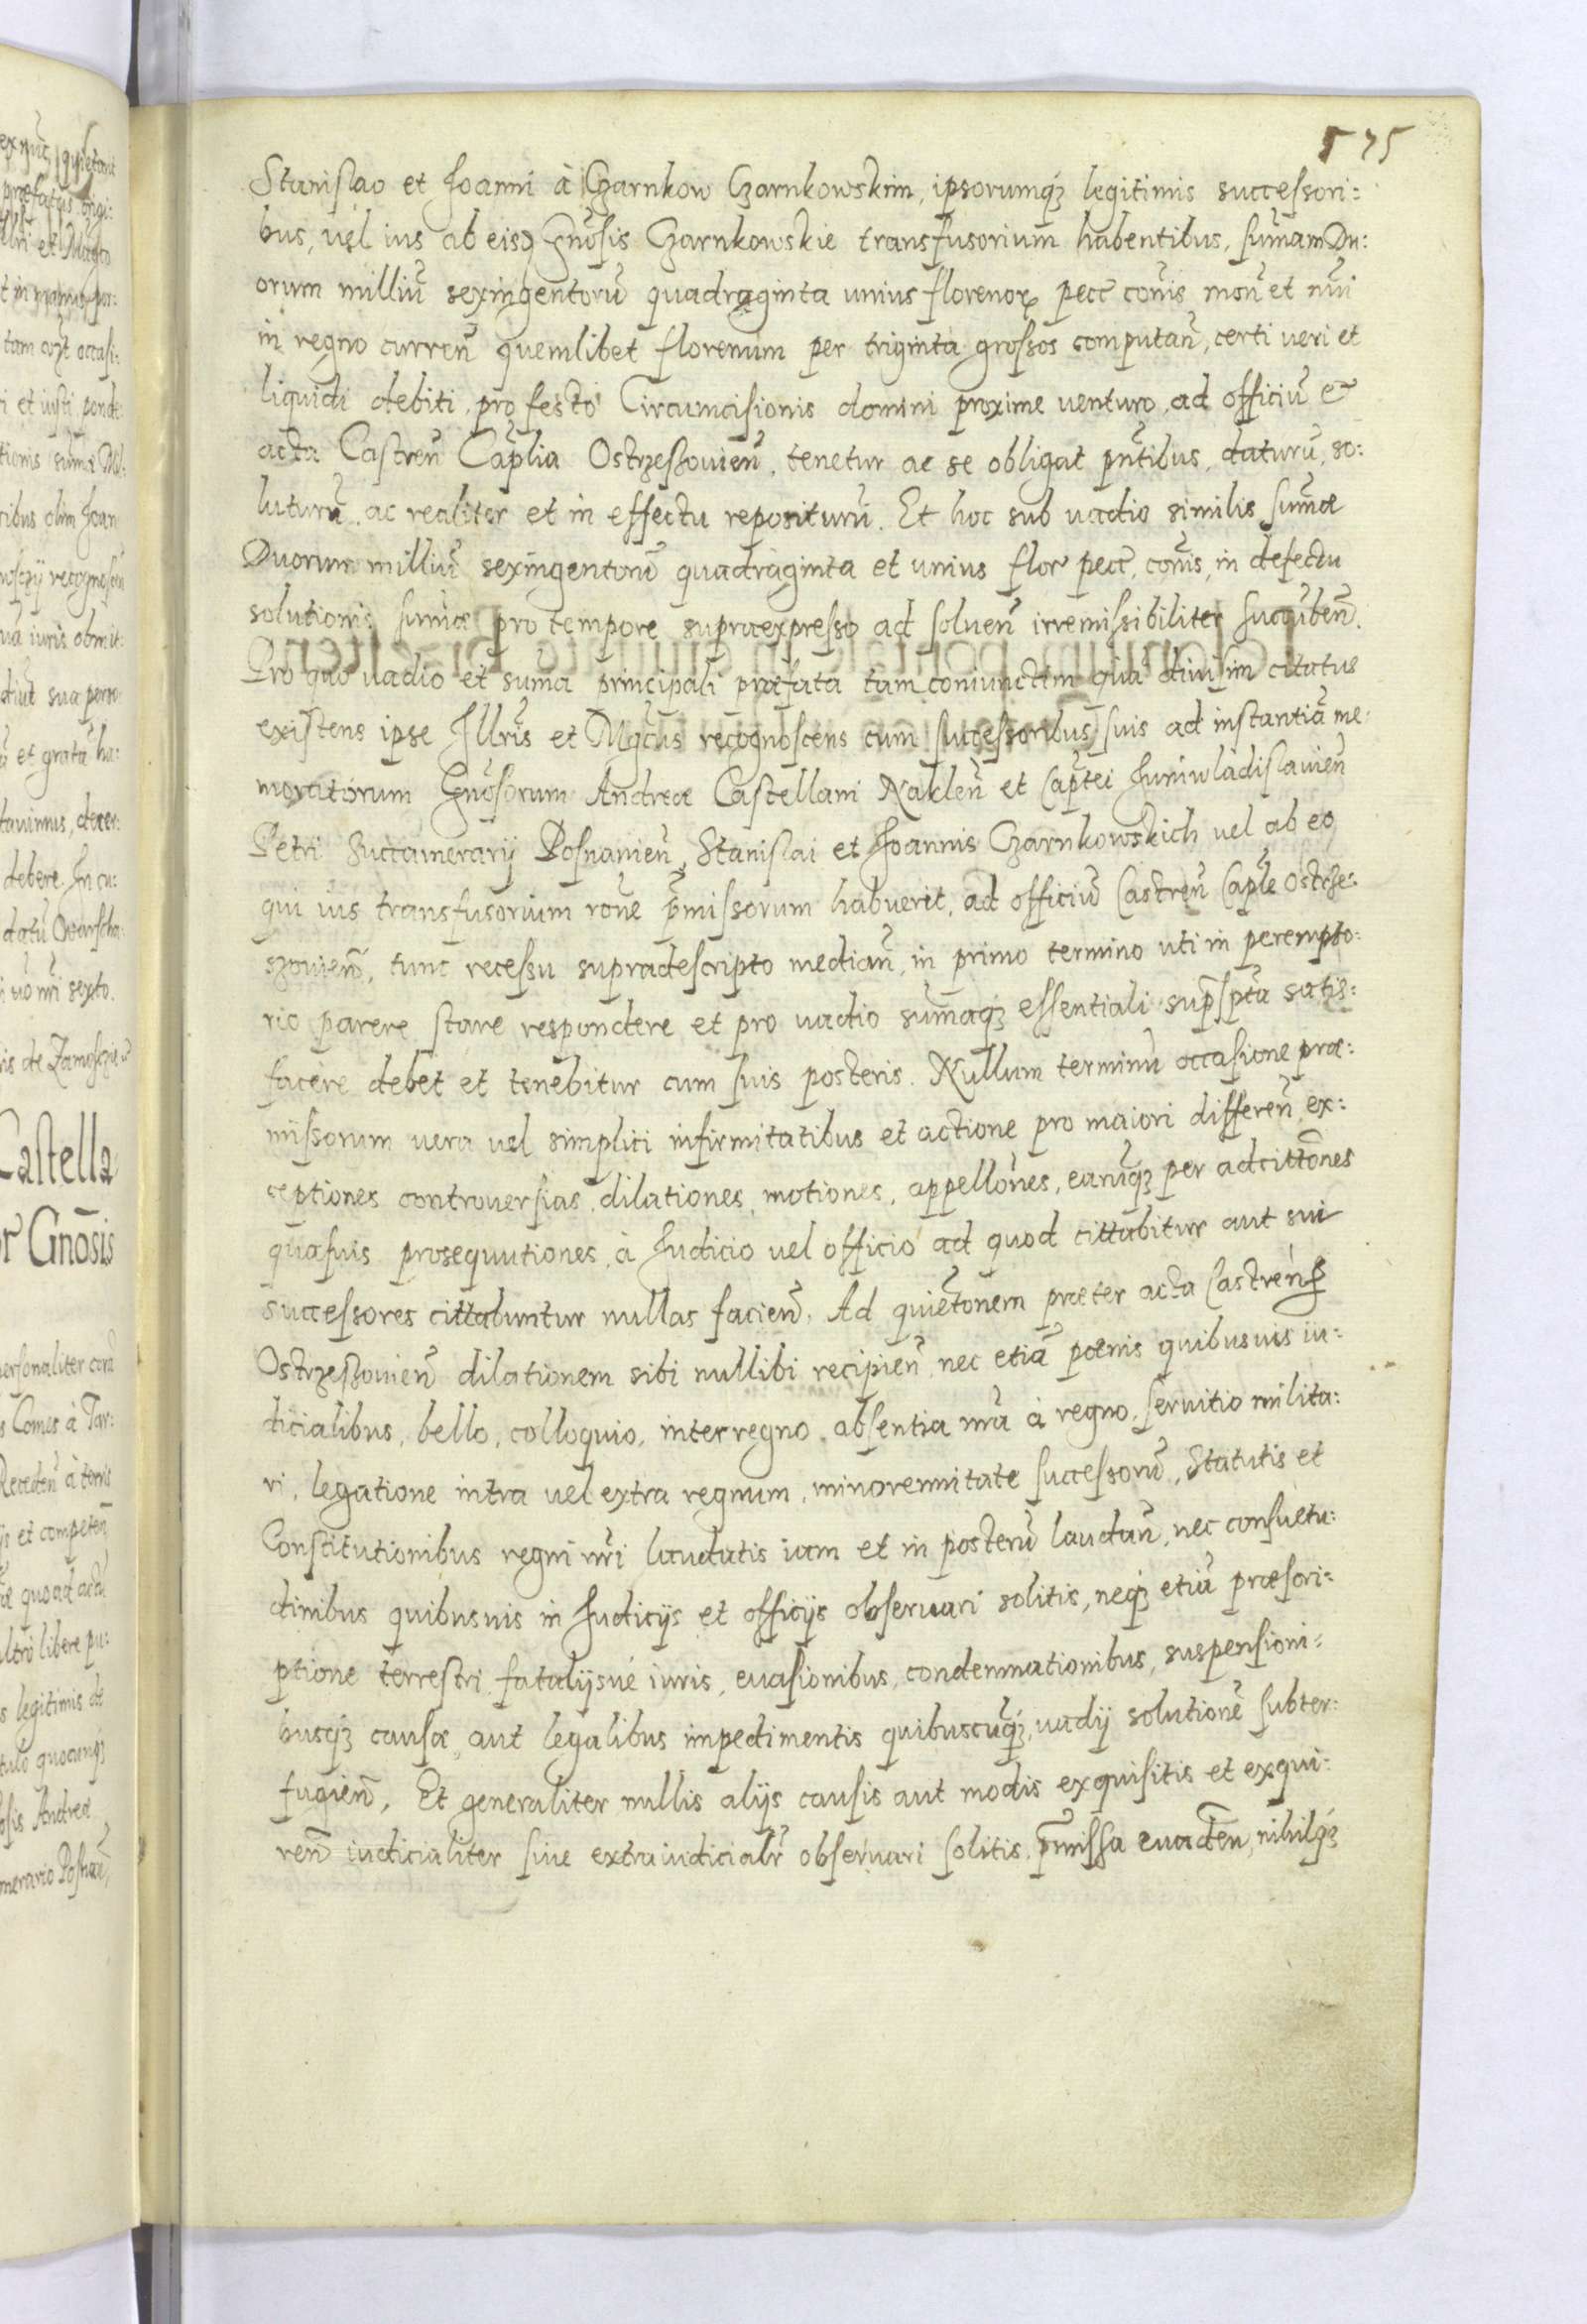 575
Stanislao et Joanni à Czarnkow Czarnkowskim, ipsorumq́ʒ legitimis successori:
bus, uel ius ab eisdem Gnosis Czarnkowskie transfusorium habentibus, sum̃am Du:
orum milliũ sexingentorũ quadraginta unius florenorꝝ pecc com̃is mon̄ et nũi
in regno curren̄ quemlibet florenum per triginta grossos computan̄, certi ueri et
liquidi debiti, pro festo Circumcisionis domini proxime uenturo, ad officiũ et
acta Castren̄ Cap̃lia Ostrzeszouien̄, tenetur ac se obligat pñtibus, daturũ, so:
luturũ, ac realiter et in effectu repositurũ. Et hoc sub uadio similis sum̃æ
Duorum milliũ sexingentorũ quadraginta et unius flor pecc, com̃is, in defectu
solutionis sum̃æ pro tempore supraexpresso ad soluen̄ irremissibiliter succũben̄.
Pro quo uadio et sum̃a principali præfata tam coniunctim quã diuisim citatus
existens ipse Illris et Mgcus recognoscens cum successoribus suis ad instantiã me:
moratorum Gnosorum Andreæ Castellani Naklen̄ et Cap̃tei Juniwladislauien̄
Petri Succamerarij Posnanien̄, Stanislai et Joannis Czarnkowskich uel ab eo,
qui ius transfusorium rõne p̃missorum habuerit, ad officiũ Castren̄ Cap̃le Ostrze:
szouien̄, tunc recessu supradescripto median̄, in primo termino uti in perempto:
rio parere stare respondere et pro uadio sum̃aq́ʒ essentiali supr̃sp̃ta satis:
facere debet et tenebitur cum suis posteris. Nullum terminũ occasione præ:
missorum uera uel simplici infirmitatibus et actione pro maiori differen̄, ex:
ceptiones controuersias, dilationes, motiones, appellõnes, earũq́ʒ per adcittõnes
quasuis prosequutiones, à Judicio uel officio ad quod cittabitur aut sui
successores cittabuntur nullas facien̄. Ad quietõnem præter acta Castren̄
Ostrzeszouien̄ dilationem sibi nullibi recipien̄, nec etiã pœnis quibusuis iu:
dicialibus, bello, colloquio, interregno, absentia nr̃a à regno, seruitio milita:
ri, legatione intra uel extra regnum, minorennitate successorũ, Statutis et
Constitutionibus regni nr̃i laudatis iam et in posterũ laudan̄, nec consuetu:
dinibus quibusuis in Judicijs et officijs obseruari solitis, neq́ʒ etiã præscri:
ptione terrestri fatalijsue iuris, euasionibus, condemnationibus, suspensioni:
busq́ʒ causæ, aut legalibus impedimentis quibuscũq́ʒ, uadij solutionẽ subter:
fugien̄, Et generaliter nullis alijs causis aut modis exquisitis et exqui:
ren̄ iudicialiter siue extraiudicialr̃ obseruari solitis, p̃missa euaden̄, nihilq́ʒ